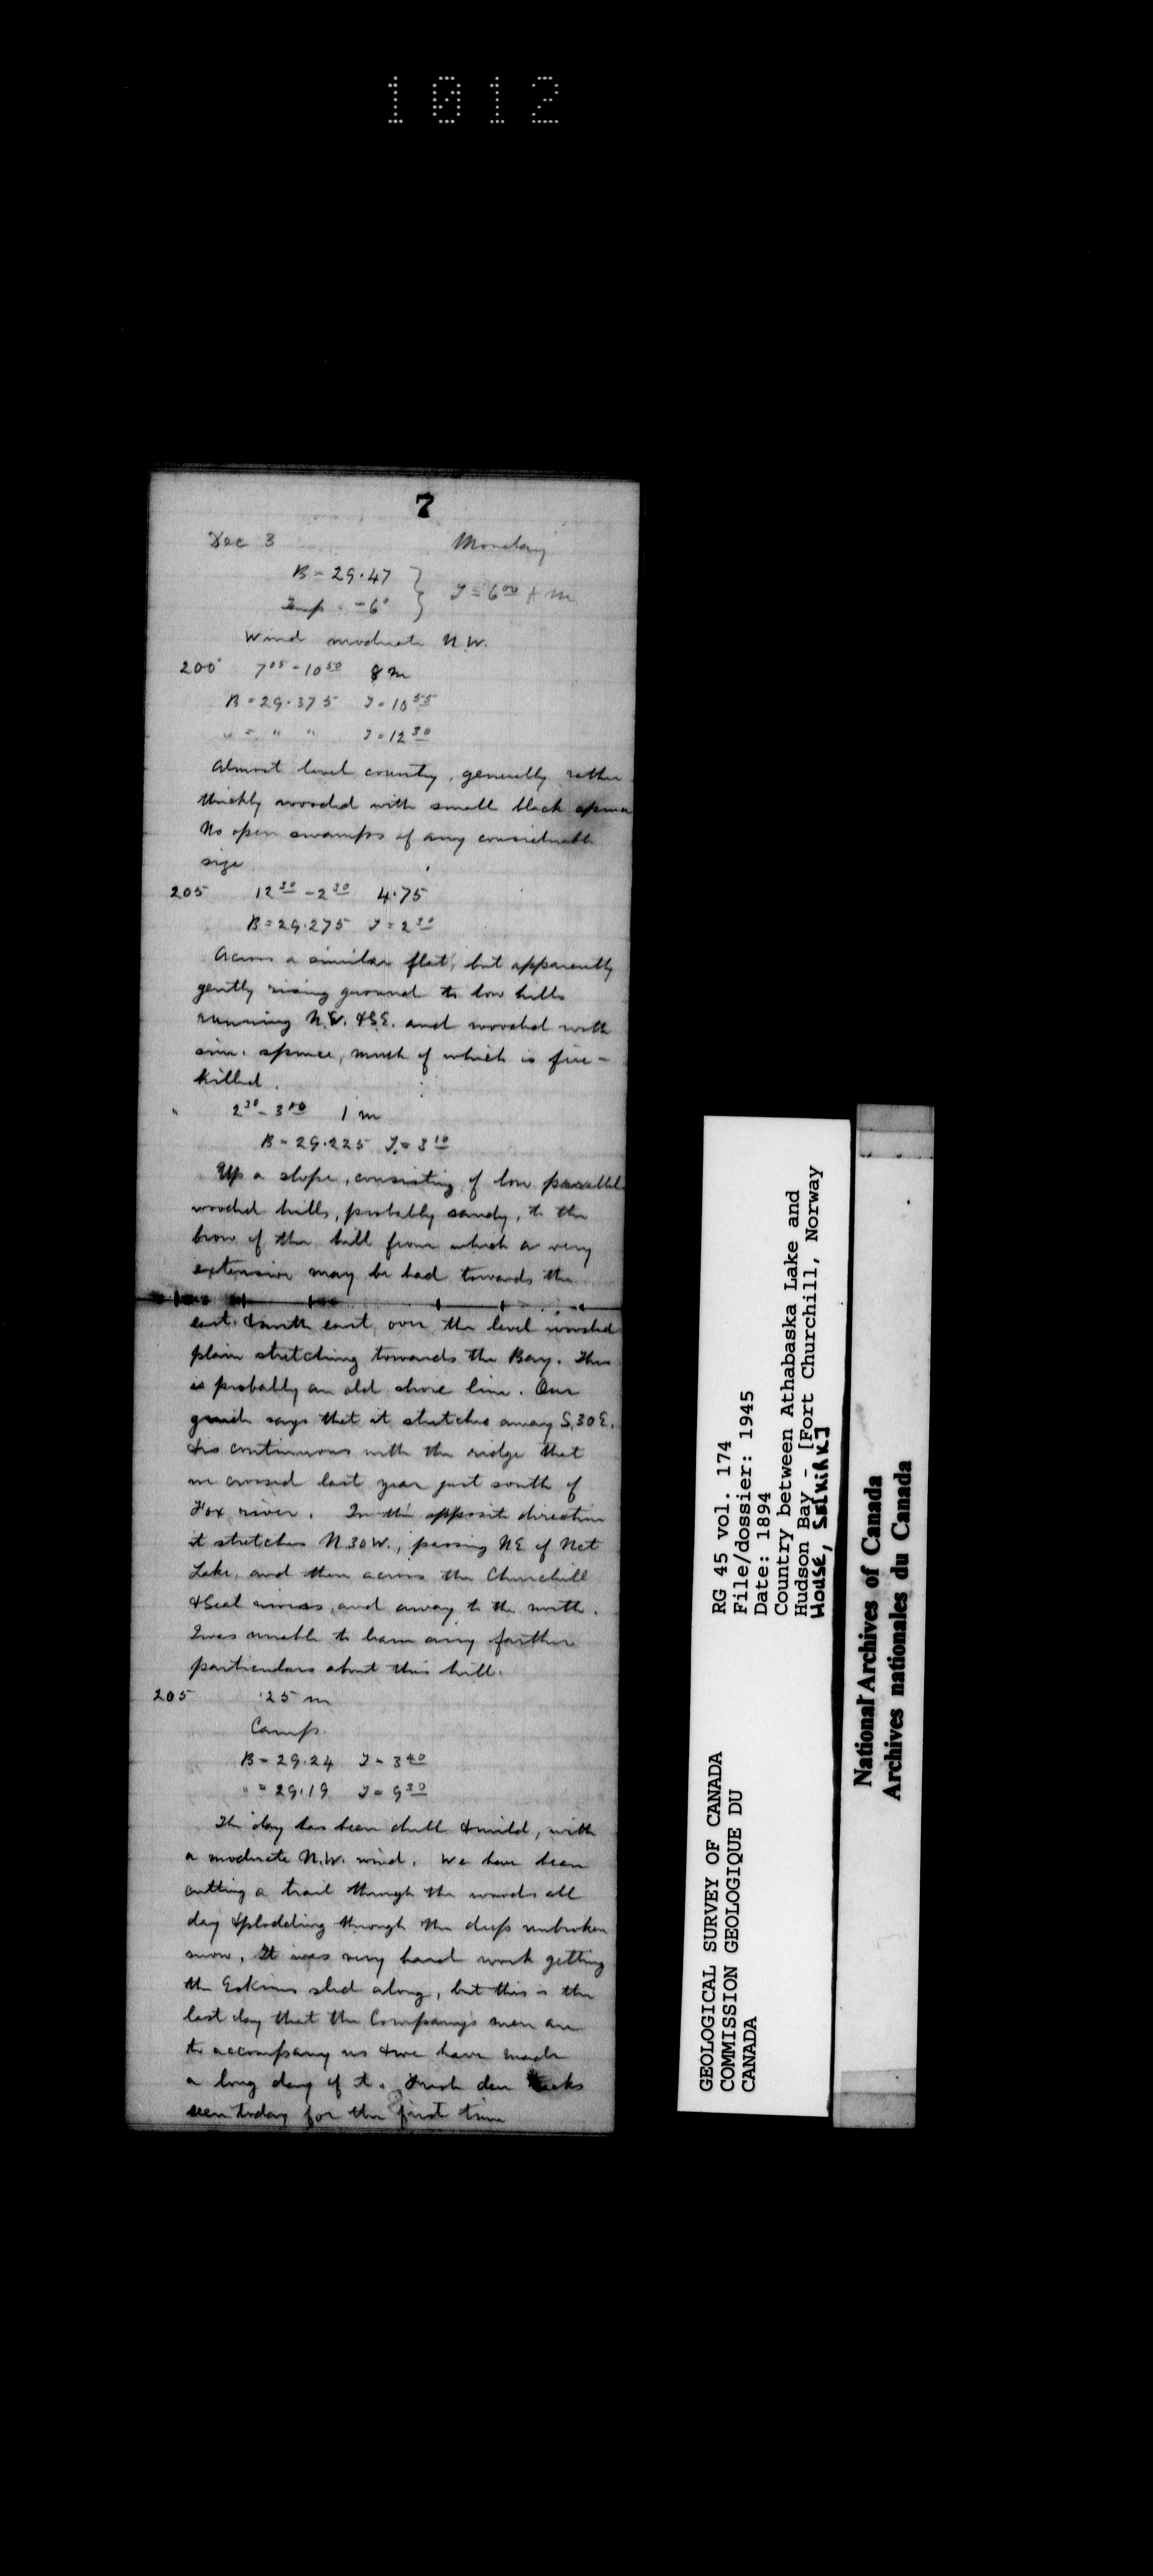 1012
7
Dec 3 Monday
B = 29.47
Temp = -6° } T = 6⁰⁰ A m
Wind moderate N.W.
200 7⁰⁵ - 10⁵⁰ 8 m
B = 29.375 T = 10⁵⁵
" = " " T = 12³⁰
Almost level country, generally rather
thickly wooded with small black spruce
No open swamps of any considerable
size
205 12³⁰ - 2³⁰ 4.75
B = 29.275 T = 2³⁰
Across a similar flat, but apparently
gently rising ground to low hills
running N.W. & S.E. and wooded with
sim. spruce, much of which is fire-
killed.
" 2³⁰ - 3⁰⁰ 1 m
B = 29.225 T = 3¹⁰
Up a slope, consisting of low parallel
wooded hills, probably sandy, to the
brow of the hill from which a very
extensive may be had towards the
east & north east over the level wooded
plain stretching towards the Bay. This
is probably an old shore line. Our
guide says that it stretches away S.30E.
& is continuous with the ridge that
we crossed last year just south of
Fox river. In the opposite direction
it stretches N30W., passing NE of Net
Lake, and then across the Churchill
& Seal rivers, and away to the north.
I was unable to learn any further
particulars about this hill.
205 .25 m
Camp.
B = 29.24 T = 3⁴⁰
" = 29.19 T = 9³⁰
The day has been dull & mild, with
a moderate N.W. wind. We have been
cutting a trail through the woods all
day & plodding through the deep unbroken
snow. It was very hard work getting
the Eskimo sled along, but this is the
last day that the Company's men are
to accompany us & we have made
a long day of it. Fresh deer tracks
seen today for the first time
GEOLOGICAL SURVEY OF CANADA
COMMISSION GEOLOGIQUE DU
CANADA
RG 45 vol. 174
File/dossier: 1945
Date: 1894
Country between Athabaska Lake and
Hudson Bay - [Fort Churchill, Norway
House, Selkirk]
National Archives of Canada
Archives nationales du Canada